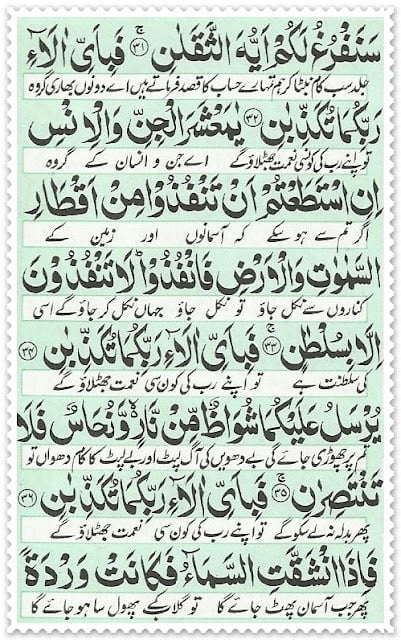 سَنَفْرُغُ لَكُمْ اَیُّهَ الثَّقَلٰنِ ﴿۳۱﴾ۚ فَبِاَیِّ اٰلَآءِ
جلد سب کام نبٹا کر ہم تمہارے حساب کا قصد فرماتے ہیں اے دونوں بھاری گروہ
رَبِّكُمَا تُكَذِّبٰنِ ﴿۳۲﴾ یٰمَعْشَرَ الْجِنِّ وَالْاِنْسِ
تو اپنے رب کی کونسی نعمت جھٹلاؤ گے اے جن و انسان کے گروہ
اِنِ اسْتَطَعْتُمْ اَنْ تَنْفُذُوْا مِنْ اَقْطَارِ
اگر تم سے ہو سکے کہ آسمانوں اور زمین کے
السَّمٰوٰتِ وَالْاَرْضِ فَانْفُذُوْا ؕ لَا تَنْفُذُوْنَ
کناروں سے نکل جاؤ تو نکل جاؤ جہاں نکل کر جاؤ گے اسی
اِلَّا بِسُلْطٰنٍ ﴿۳۳﴾ۚ فَبِاَیِّ اٰلَآءِ رَبِّكُمَا تُكَذِّبٰنِ ﴿۳۴﴾
کی سلطنت ہے تو اپنے رب کی کون سی نعمت جھٹلاؤ گے
یُرْسَلُ عَلَیْكُمَا شُوَاظٌ مِّنْ نَّارٍ ۙ وَّنُحَاسٌ فَلَا
تم پر چھوڑی جائے گی بے دھویں کی آگ کی لپٹ اور بے لپٹ کا کالا دھواں تو
تَنْتَصِرٰنِ ﴿۳۵﴾ۚ فَبِاَیِّ اٰلَآءِ رَبِّكُمَا تُكَذِّبٰنِ ﴿۳۶﴾
پھر بدلہ نہ لے سکو گے تو اپنے رب کی کون سی نعمت جھٹلاؤ گے
فَاِذَا انْشَقَّتِ السَّمَآءُ فَكَانَتْ وَرْدَةً
پھر جب آسمان پھٹ جائے گا تو گلاب کے پھول سا ہو جائے گا